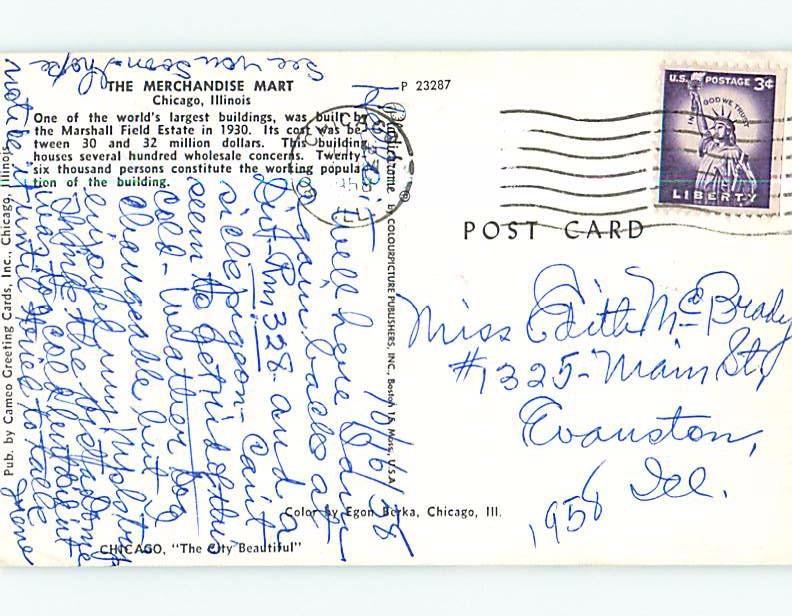 THE MERCHANDISE MART
Chicago, Illinois
One of the world's largest buildings, was built by
the Marshall Field Estate in 1930. Its cost was be-
tween 30 and 32 million dollars. This building
houses several hundred wholesale concerns. Twenty-
six thousand persons constitute the working popula-
tion of the building.
P 23287
Pub. by Cameo Greeting Cards, Inc., Chicago, Illinois
Plastichrome ® by COLOURPICTURE PUBLISHERS, INC., Boston 15, Mass., U.S.A.
Color by Egon Berka, Chicago, Ill.
CHICAGO, "The City Beautiful"
POST CARD
U.S. POSTAGE 3¢
IN GOD WE TRUST
LIBERTY
10/6/58
well here I am
again back at
Rm 328- and a
sick pigeon- can't
seem to get rid of this
cold- weather
changeable but
enjoyed my
the
cold but
until tried to talk
Irene
See you soon I hope
Miss Edith McBrady
#1325- Main St,
Evanston,
Ill.
1958